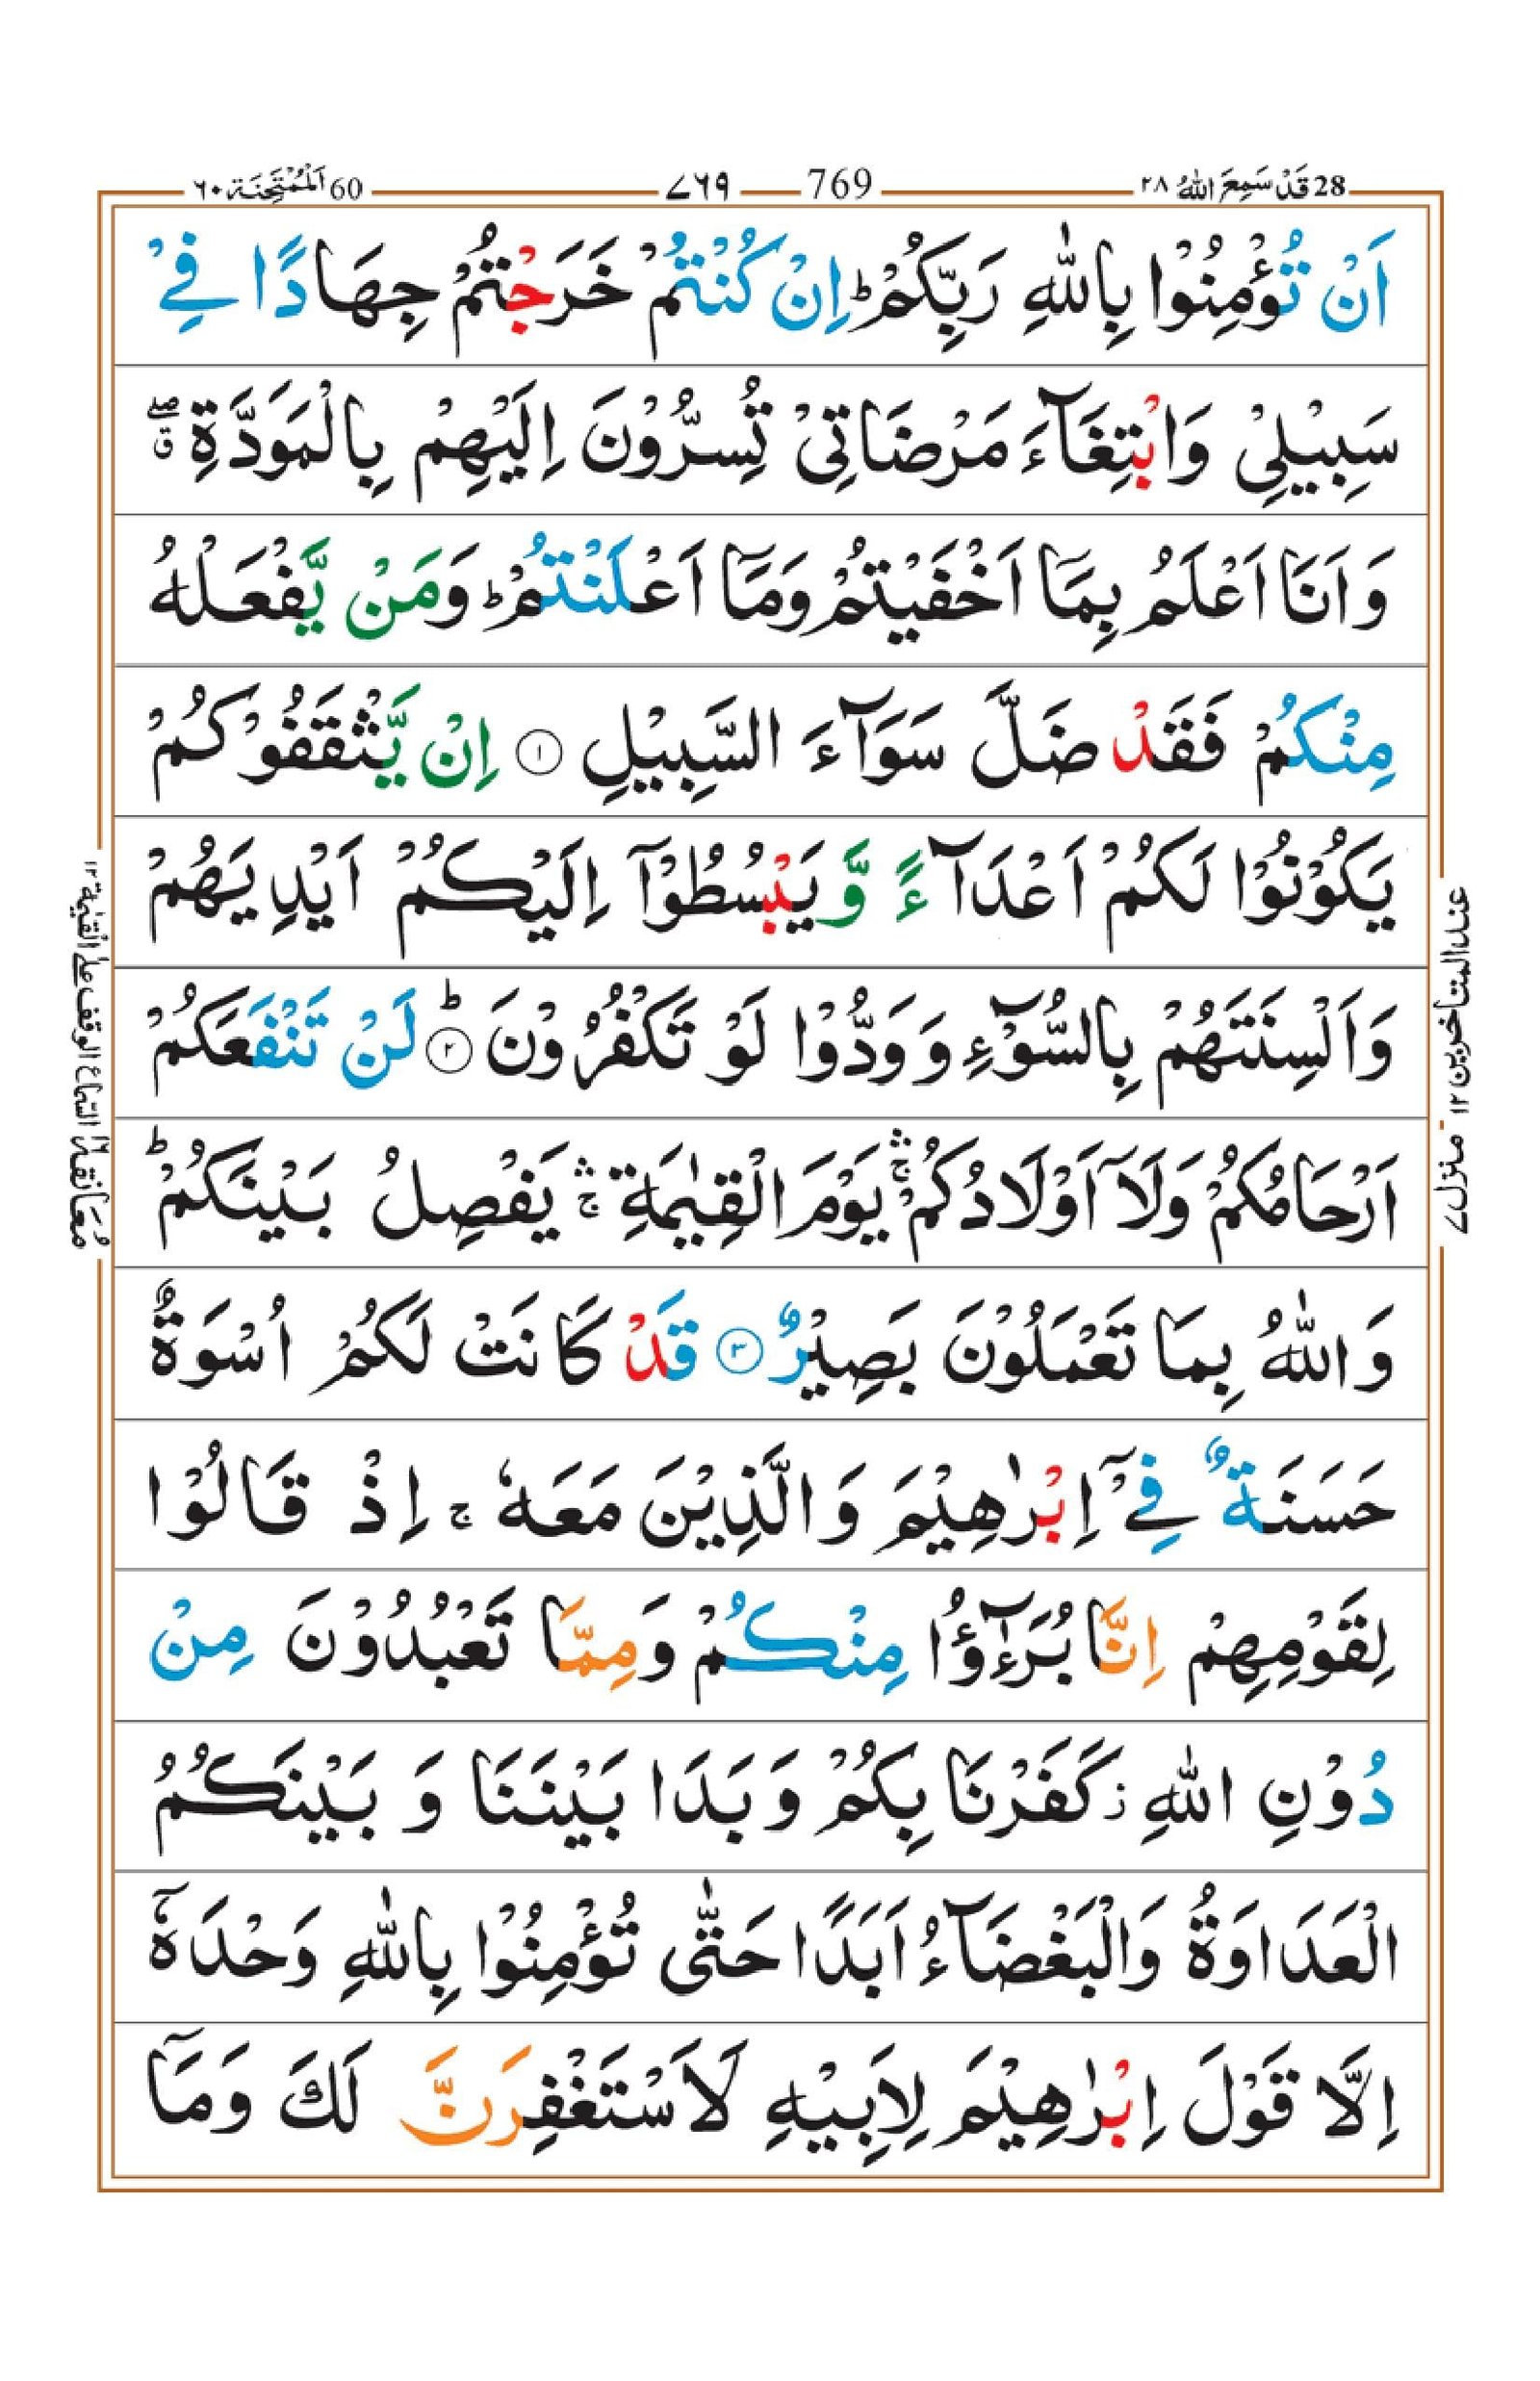 28 قَدْ سَمِعَ اللّٰهُ ٢٨
769 ٧٦٩
60 اَلْمُمْتَحِنَة ٦٠
اَنْ تُؤْمِنُوْا بِاللّٰهِ رَبِّكُمْ ؕ اِنْ كُنْتُمْ خَرَجْتُمْ جِهَادًا فِيْ
سَبِيْلِيْ وَابْتِغَآءَ مَرْضَاتِيْ تُسِرُّوْنَ اِلَيْهِمْ بِالْمَوَدَّةِ ۖق
وَاَنَا اَعْلَمُ بِمَاۤ اَخْفَيْتُمْ وَمَاۤ اَعْلَنْتُمْ ؕ وَمَنْ يَّفْعَلْهُ
مِنْكُمْ فَقَدْ ضَلَّ سَوَآءَ السَّبِيْلِ ۝١ اِنْ يَّثْقَفُوْكُمْ
يَكُوْنُوْا لَكُمْ اَعْدَآءً وَّيَبْسُطُوْۤا اِلَيْكُمْ اَيْدِيَهُمْ
وَاَلْسِنَتَهُمْ بِالسُّوْٓءِ وَوَدُّوْا لَوْ تَكْفُرُوْنَ ؕ۝٢ لَنْ تَنْفَعَكُمْ
اَرْحَامُكُمْ وَلَاۤ اَوْلَادُكُمْ ۛۚ يَوْمَ الْقِيٰمَةِ ۛۚ يَفْصِلُ بَيْنَكُمْ ؕ
وَاللّٰهُ بِمَا تَعْمَلُوْنَ بَصِيْرٌ ۝٣ قَدْ كَانَتْ لَكُمْ اُسْوَةٌ
حَسَنَةٌ فِيْۤ اِبْرٰهِيْمَ وَالَّذِيْنَ مَعَهٗ ۚ اِذْ قَالُوْا
لِقَوْمِهِمْ اِنَّا بُرَءٰٓؤُا مِنْكُمْ وَمِمَّا تَعْبُدُوْنَ مِنْ
دُوْنِ اللّٰهِ ز كَفَرْنَا بِكُمْ وَبَدَا بَيْنَنَا وَبَيْنَكُمُ
الْعَدَاوَةُ وَالْبَغْضَآءُ اَبَدًا حَتّٰى تُؤْمِنُوْا بِاللّٰهِ وَحْدَهٗۤ
اِلَّا قَوْلَ اِبْرٰهِيْمَ لِاَبِيْهِ لَاَسْتَغْفِرَنَّ لَكَ وَمَاۤ
عند المتأخرين ١٢
منزل ٧
مُعَانقة ١٦ السماع الوقف علے القيٰمة ١٢